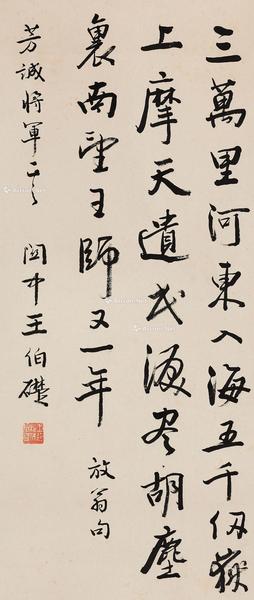 三萬里河東入海五千仞嶽
上摩天遺民淚盡胡塵
裏南望王師又一年
放翁句
芳誠將軍正之
閩中王伯礎